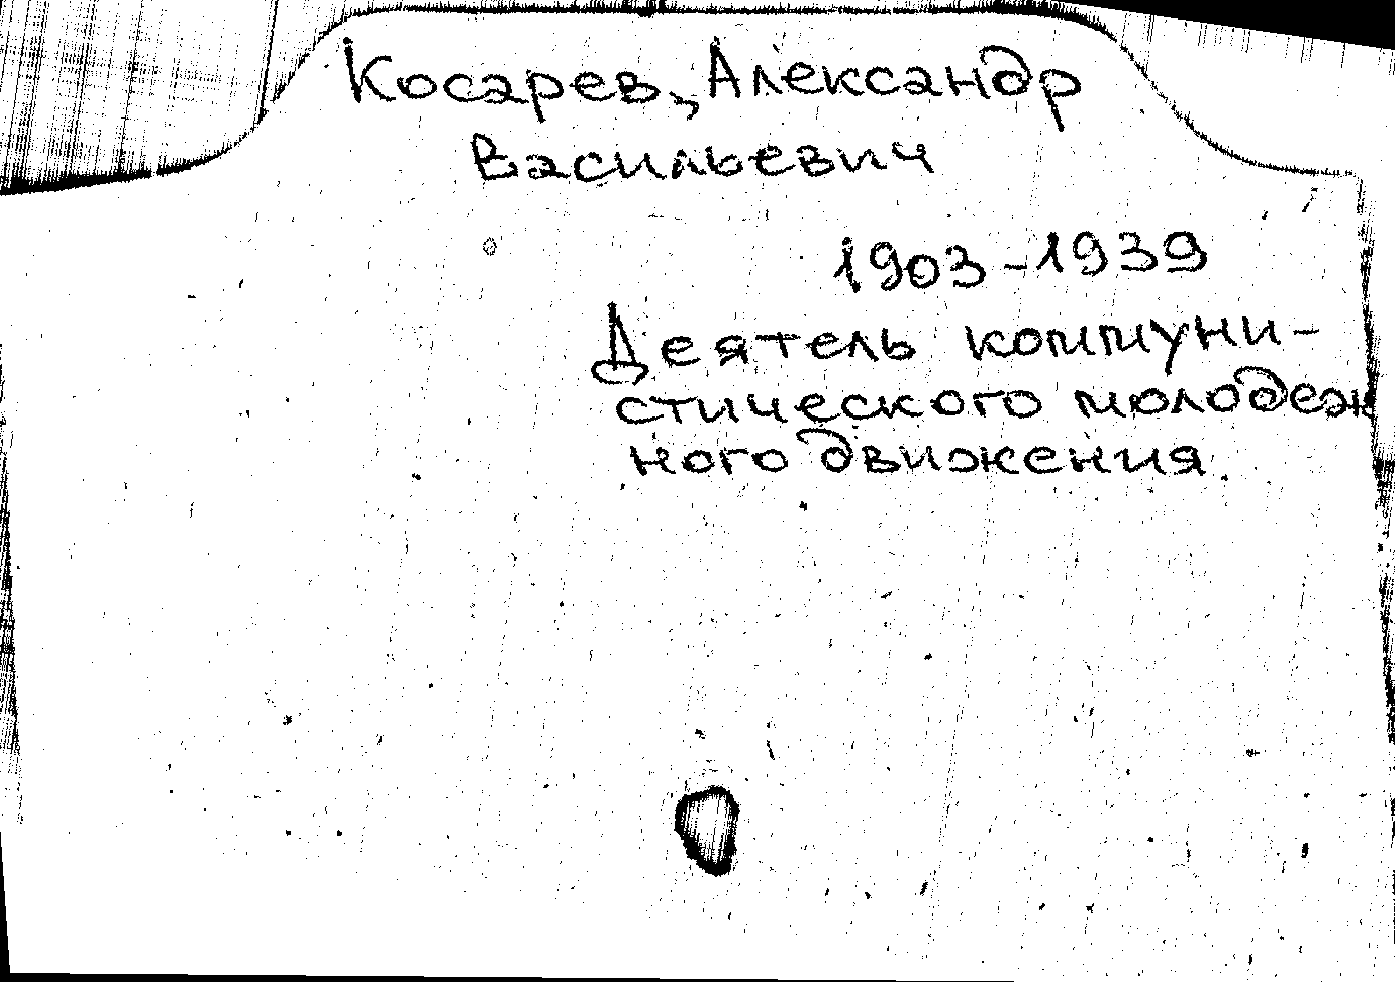 Косарев, Александр
Васильевич
1903-1939
Деятель коммуни-
стического молодеж
ного движения.